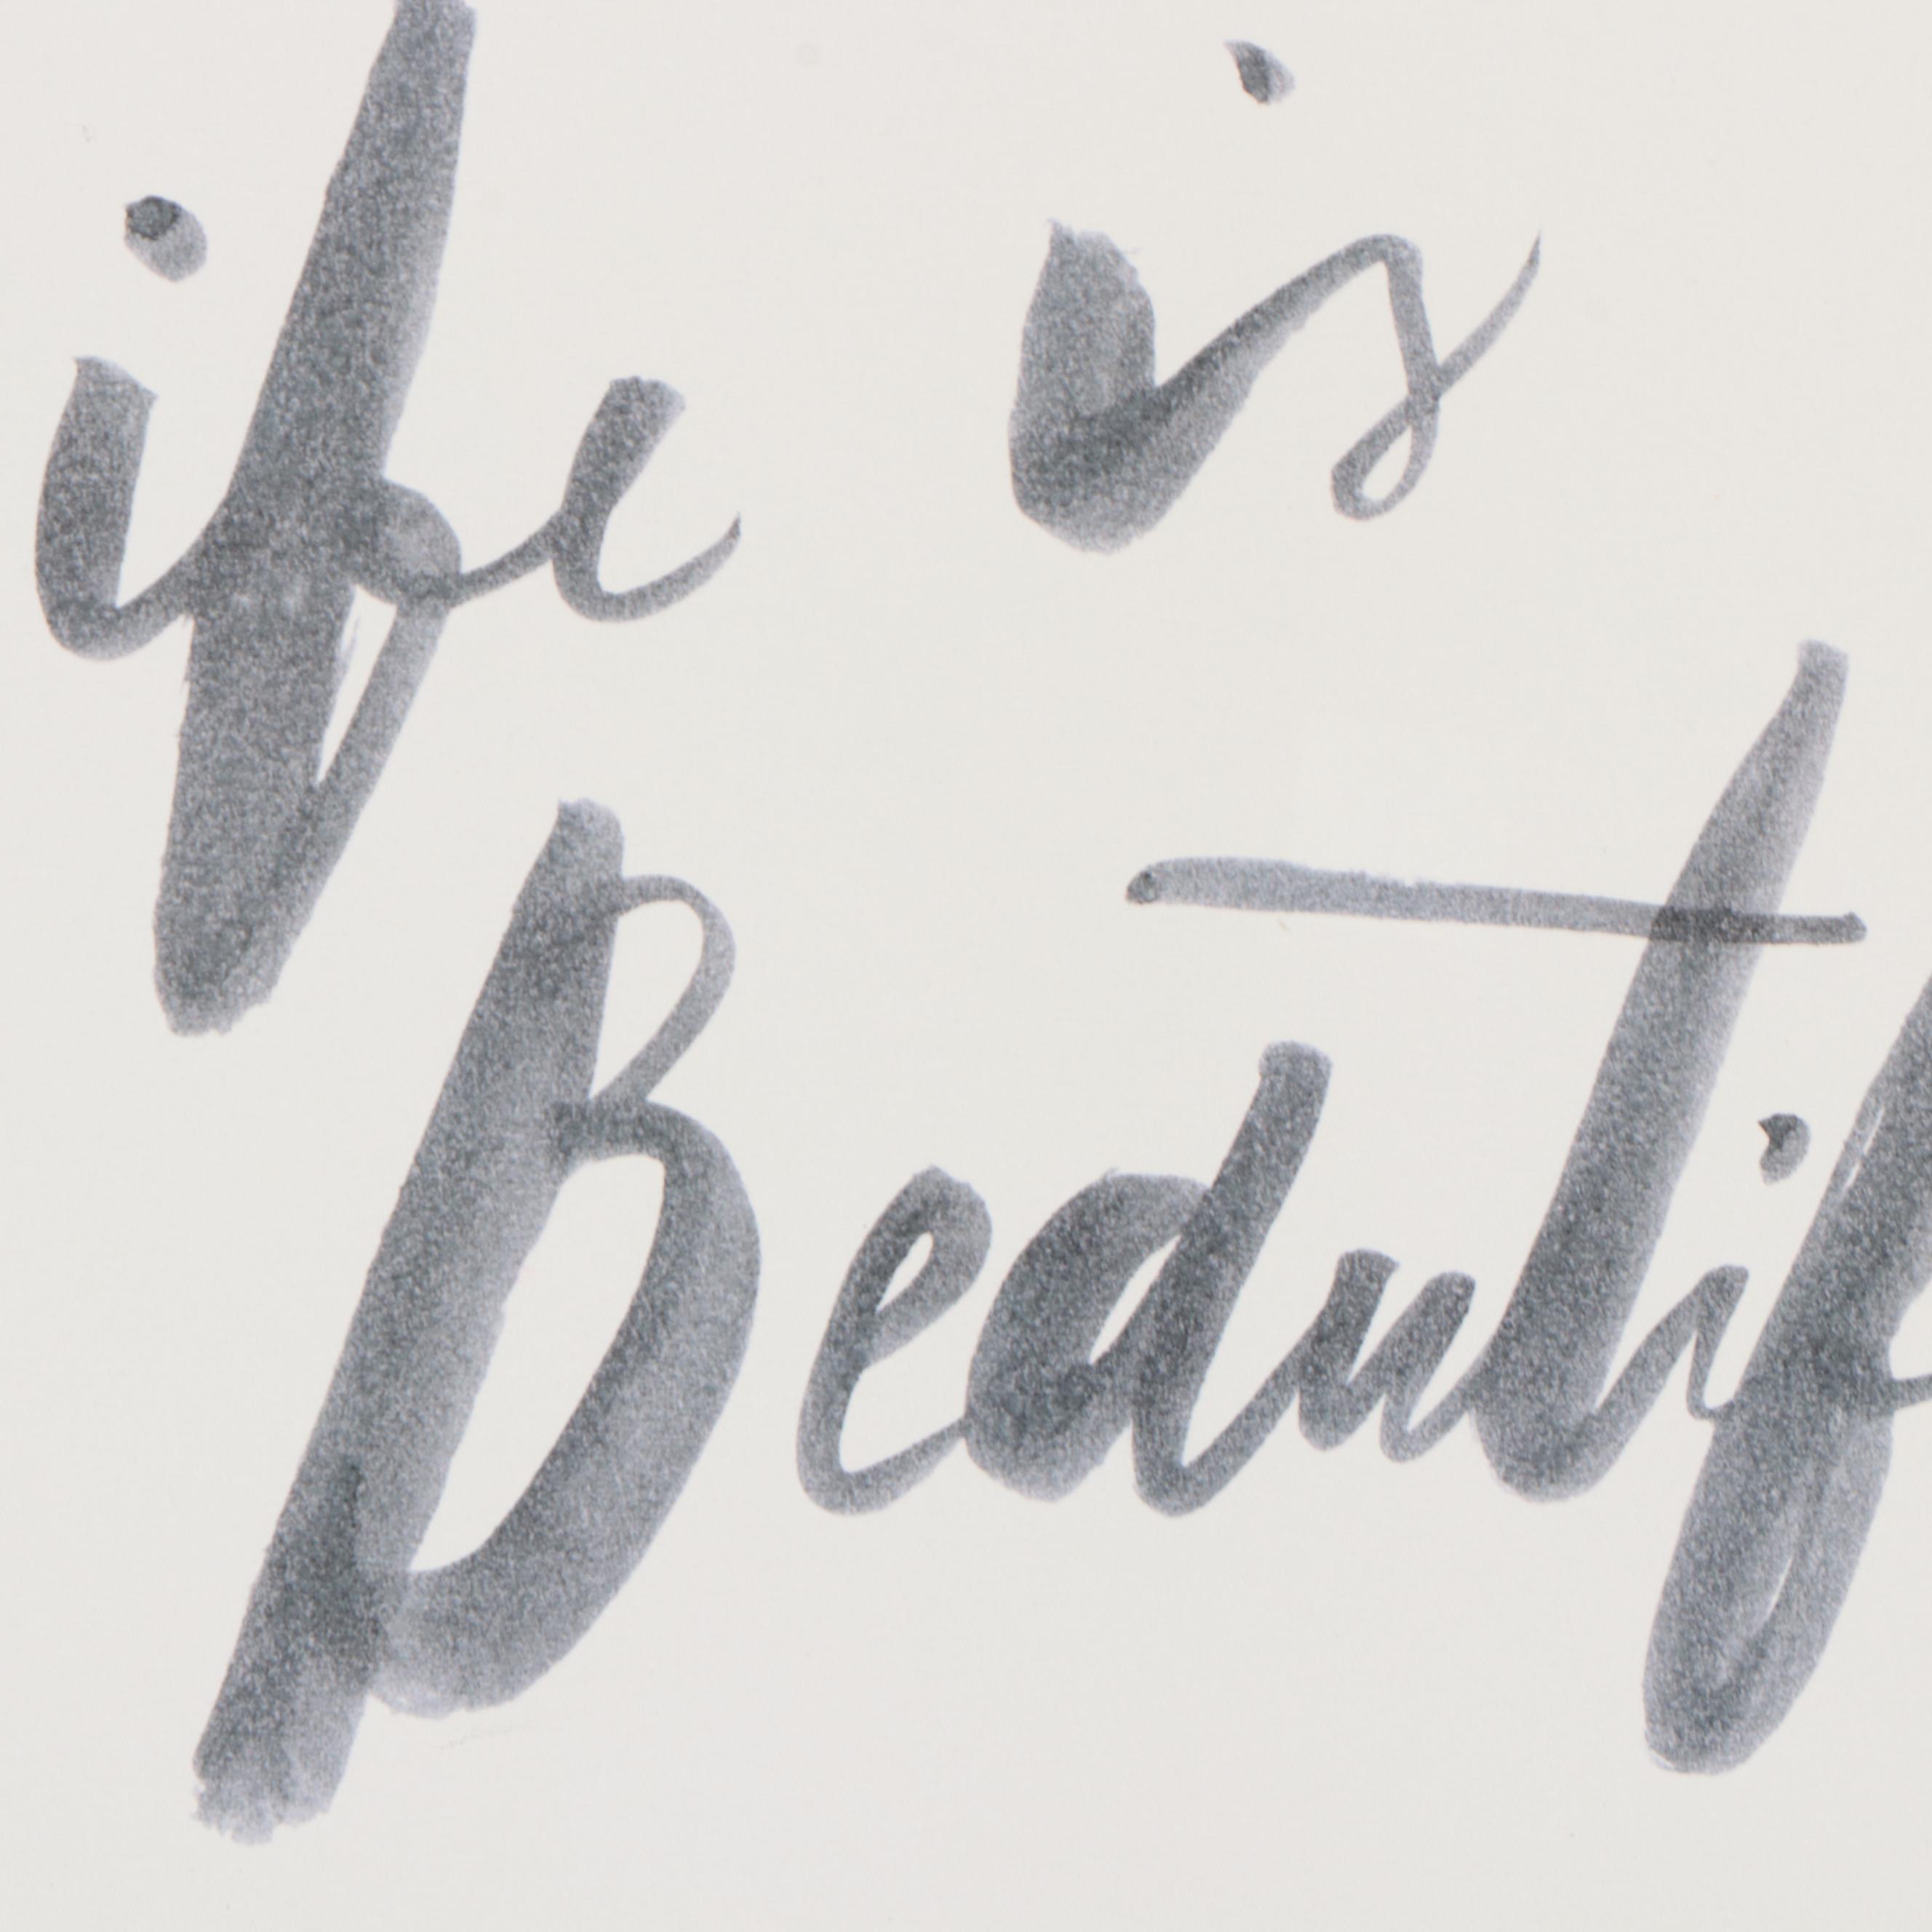 ife is
Beautif